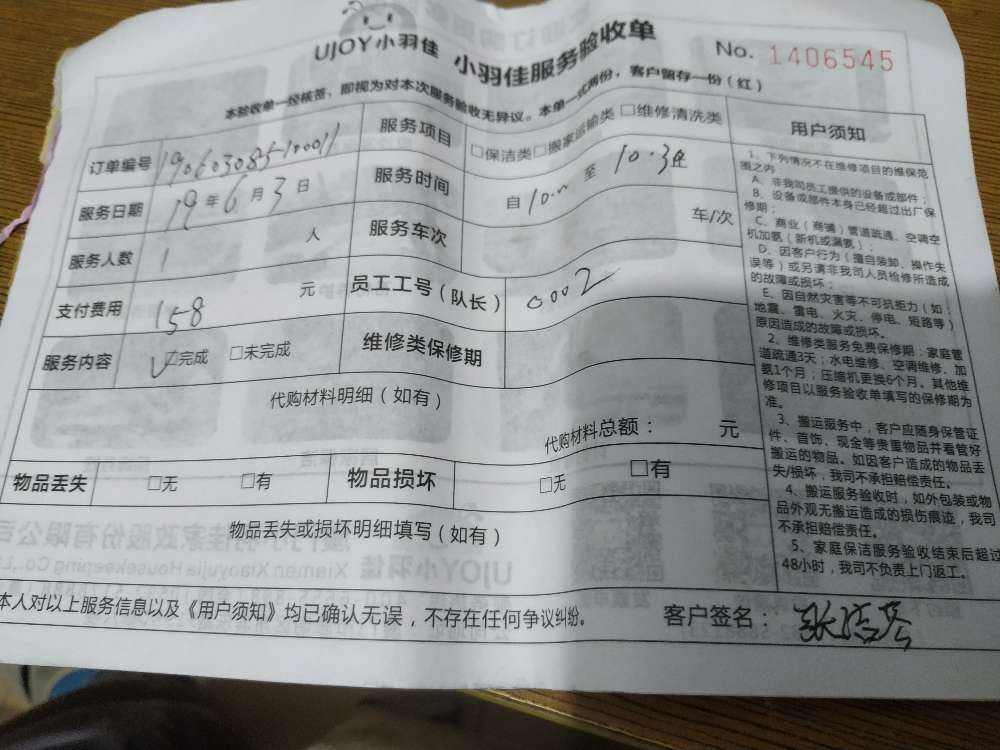 UJOY小羽佳 小羽佳服务验收单 No. 1406545
本验收单一经核签，即视为对本次服务验收无异议。本单一式两份，客户留存一份（红）
订单编号 190603085100011 服务项目 □保洁类□搬家运输类 □维修清洗类
服务日期 19年6月3日 服务时间 自10. 至10.3
服务人数 1 人 服务车次 车/次
支付费用 158 元 员工工号（队长） 0002
服务内容 ☑完成 □未完成 维修类保修期
代购材料明细（如有）
代购材料总额： 元
物品丢失 □无 □有 物品损坏 □无 □有
物品丢失或损坏明细填写（如有）
本人对以上服务信息以及《用户须知》均已确认无误，不存在任何争议纠纷。 客户签名：
用户须知
1、下列情况不在维修项目的维保范
围之内：
A、非我司员工提供的设备或部件；
B、设备或部件本身已经超过出厂保
修期；
C、商业（商铺）管道疏通、空调空
机加氨（新机或漏氨）；
D、因客户行为（擅自装卸、操作失
误等）或另请非我司人员检修所造成
的故障或损坏；
E、因自然灾害等不可抗拒力（如：
地震、雷电、火灾、停电、短路等）
原因造成的故障或损坏。
2、维修类服务免费保修期：家庭管
道疏通3天；水电维修、空调维修、加
氨1个月；压缩机更换6个月。其他维
修项目以服务验收单填写的保修期为
准。
3、搬运服务中，客户应随身保管证
件、首饰、现金等贵重物品并看管好
搬运的物品。如因客户造成的物品丢
失/损坏，我司不承担赔偿责任。
4、搬运服务验收时，如外包装或物
品外观无搬运造成的损伤痕迹，我司
不承担赔偿责任。
5、家庭保洁服务验收结束后超过
48小时，我司不负责上门返工。